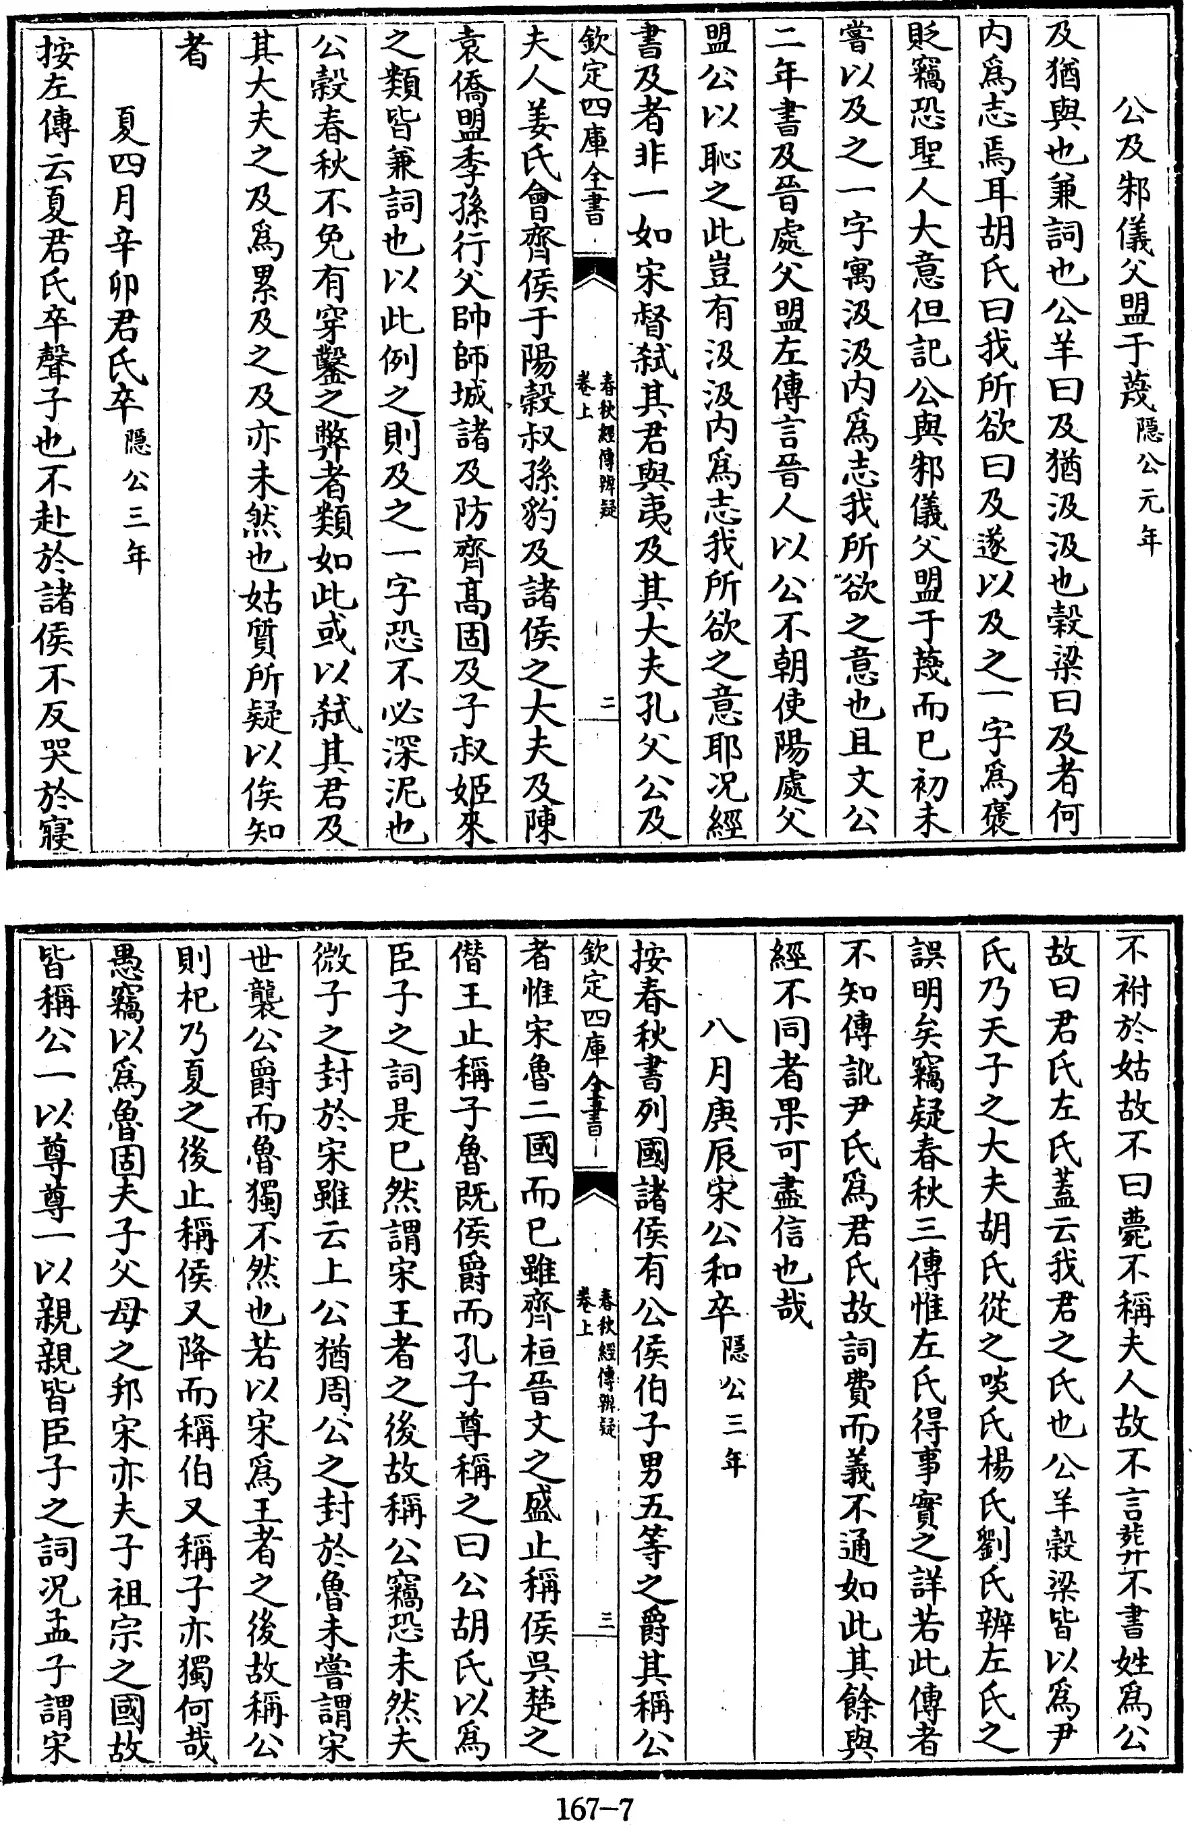 公及邾儀父盟于蔑隱公元年
及猶與也兼詞也公羊曰及猶汲汲也穀梁曰及者何
内為志焉耳胡氏曰我所欲曰及遂以及之一字為褒
貶竊恐聖人大意但記公與邾儀父盟于蔑而已初未
嘗以及之一字寓汲汲内為志我所欲之意也且文公
二年書及晉處父盟左傳言晉人以公不朝使陽處父
盟公以恥之此豈有汲汲内為志我所欲之意耶况經
書及者非一如宋督弑其君與夷及其大夫孔父公及
欽定四庫全書
春秋經傳辨疑
卷上
二
夫人姜氏會齊侯于陽穀叔孫豹及諸侯之大夫及陳
袁僑盟季孫行父帥師城諸及防齊髙固及子叔姬來
之類皆兼詞也以此例之則及之一字恐不必深泥也
公穀春秋不免有穿鑿之弊者類如此或以弑其君及
其大夫之及為累及之及亦未然也姑質所疑以俟知
者
夏四月辛卯君氏卒隱公三年
按左傳云夏君氏卒聲子也不赴於諸侯不反哭於寢
不祔於姑故不曰薨不稱夫人故不言葬不書姓為公
故曰君氏左氏蓋云我君之氏也公羊穀梁皆以為尹
氏乃天子之大夫胡氏從之啖氏楊氏劉氏辨左氏之
誤明矣竊疑春秋三傳惟左氏得事實之詳若此傳者
不知傳訛尹氏為君氏故詞費而義不通如此其餘與
經不同者果可盡信也哉
八月庚辰宋公和卒隱公三年
按春秋書列國諸侯有公侯伯子男五等之爵其稱公
欽定四庫全書
春秋經傳辨疑
卷上
三
者惟宋魯二國而已雖齊桓晉文之盛止稱侯吳楚之
僣王止稱子魯既侯爵而孔子尊稱之曰公胡氏以為
臣子之詞是已然謂宋王者之後故稱公竊恐未然夫
微子之封於宋雖云上公猶周公之封於魯未嘗謂宋
世襲公爵而魯獨不然也若以宋為王者之後故稱公
則杞乃夏之後止稱侯又降而稱伯又稱子亦獨何哉
愚竊以為魯固夫子父母之邦宋亦夫子祖宗之國故
皆稱公一以尊尊一以親親皆臣子之詞况孟子謂宋
167-7